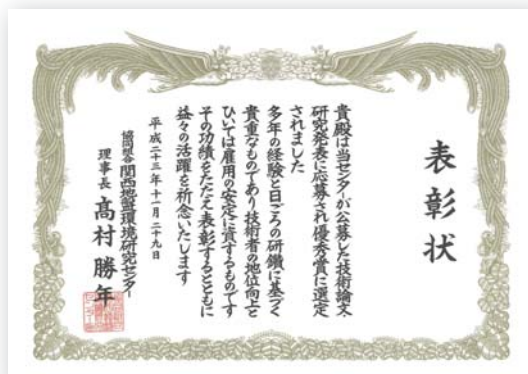 表彰状
貴殿は当センターが公募した技術論文・
研究発表に応募され優秀賞に選定
されました
多年の経験と日ごろの研鑽に基づく
貴重なものであり技術者の地位向上と
ひいては雇用の安定に資するものです
その功績をたたえ表彰するとともに
益々の活躍を祈念いたします
平成二十三年十一月二十九日
協同組合関西地盤環境研究センター
理事長 髙村勝年